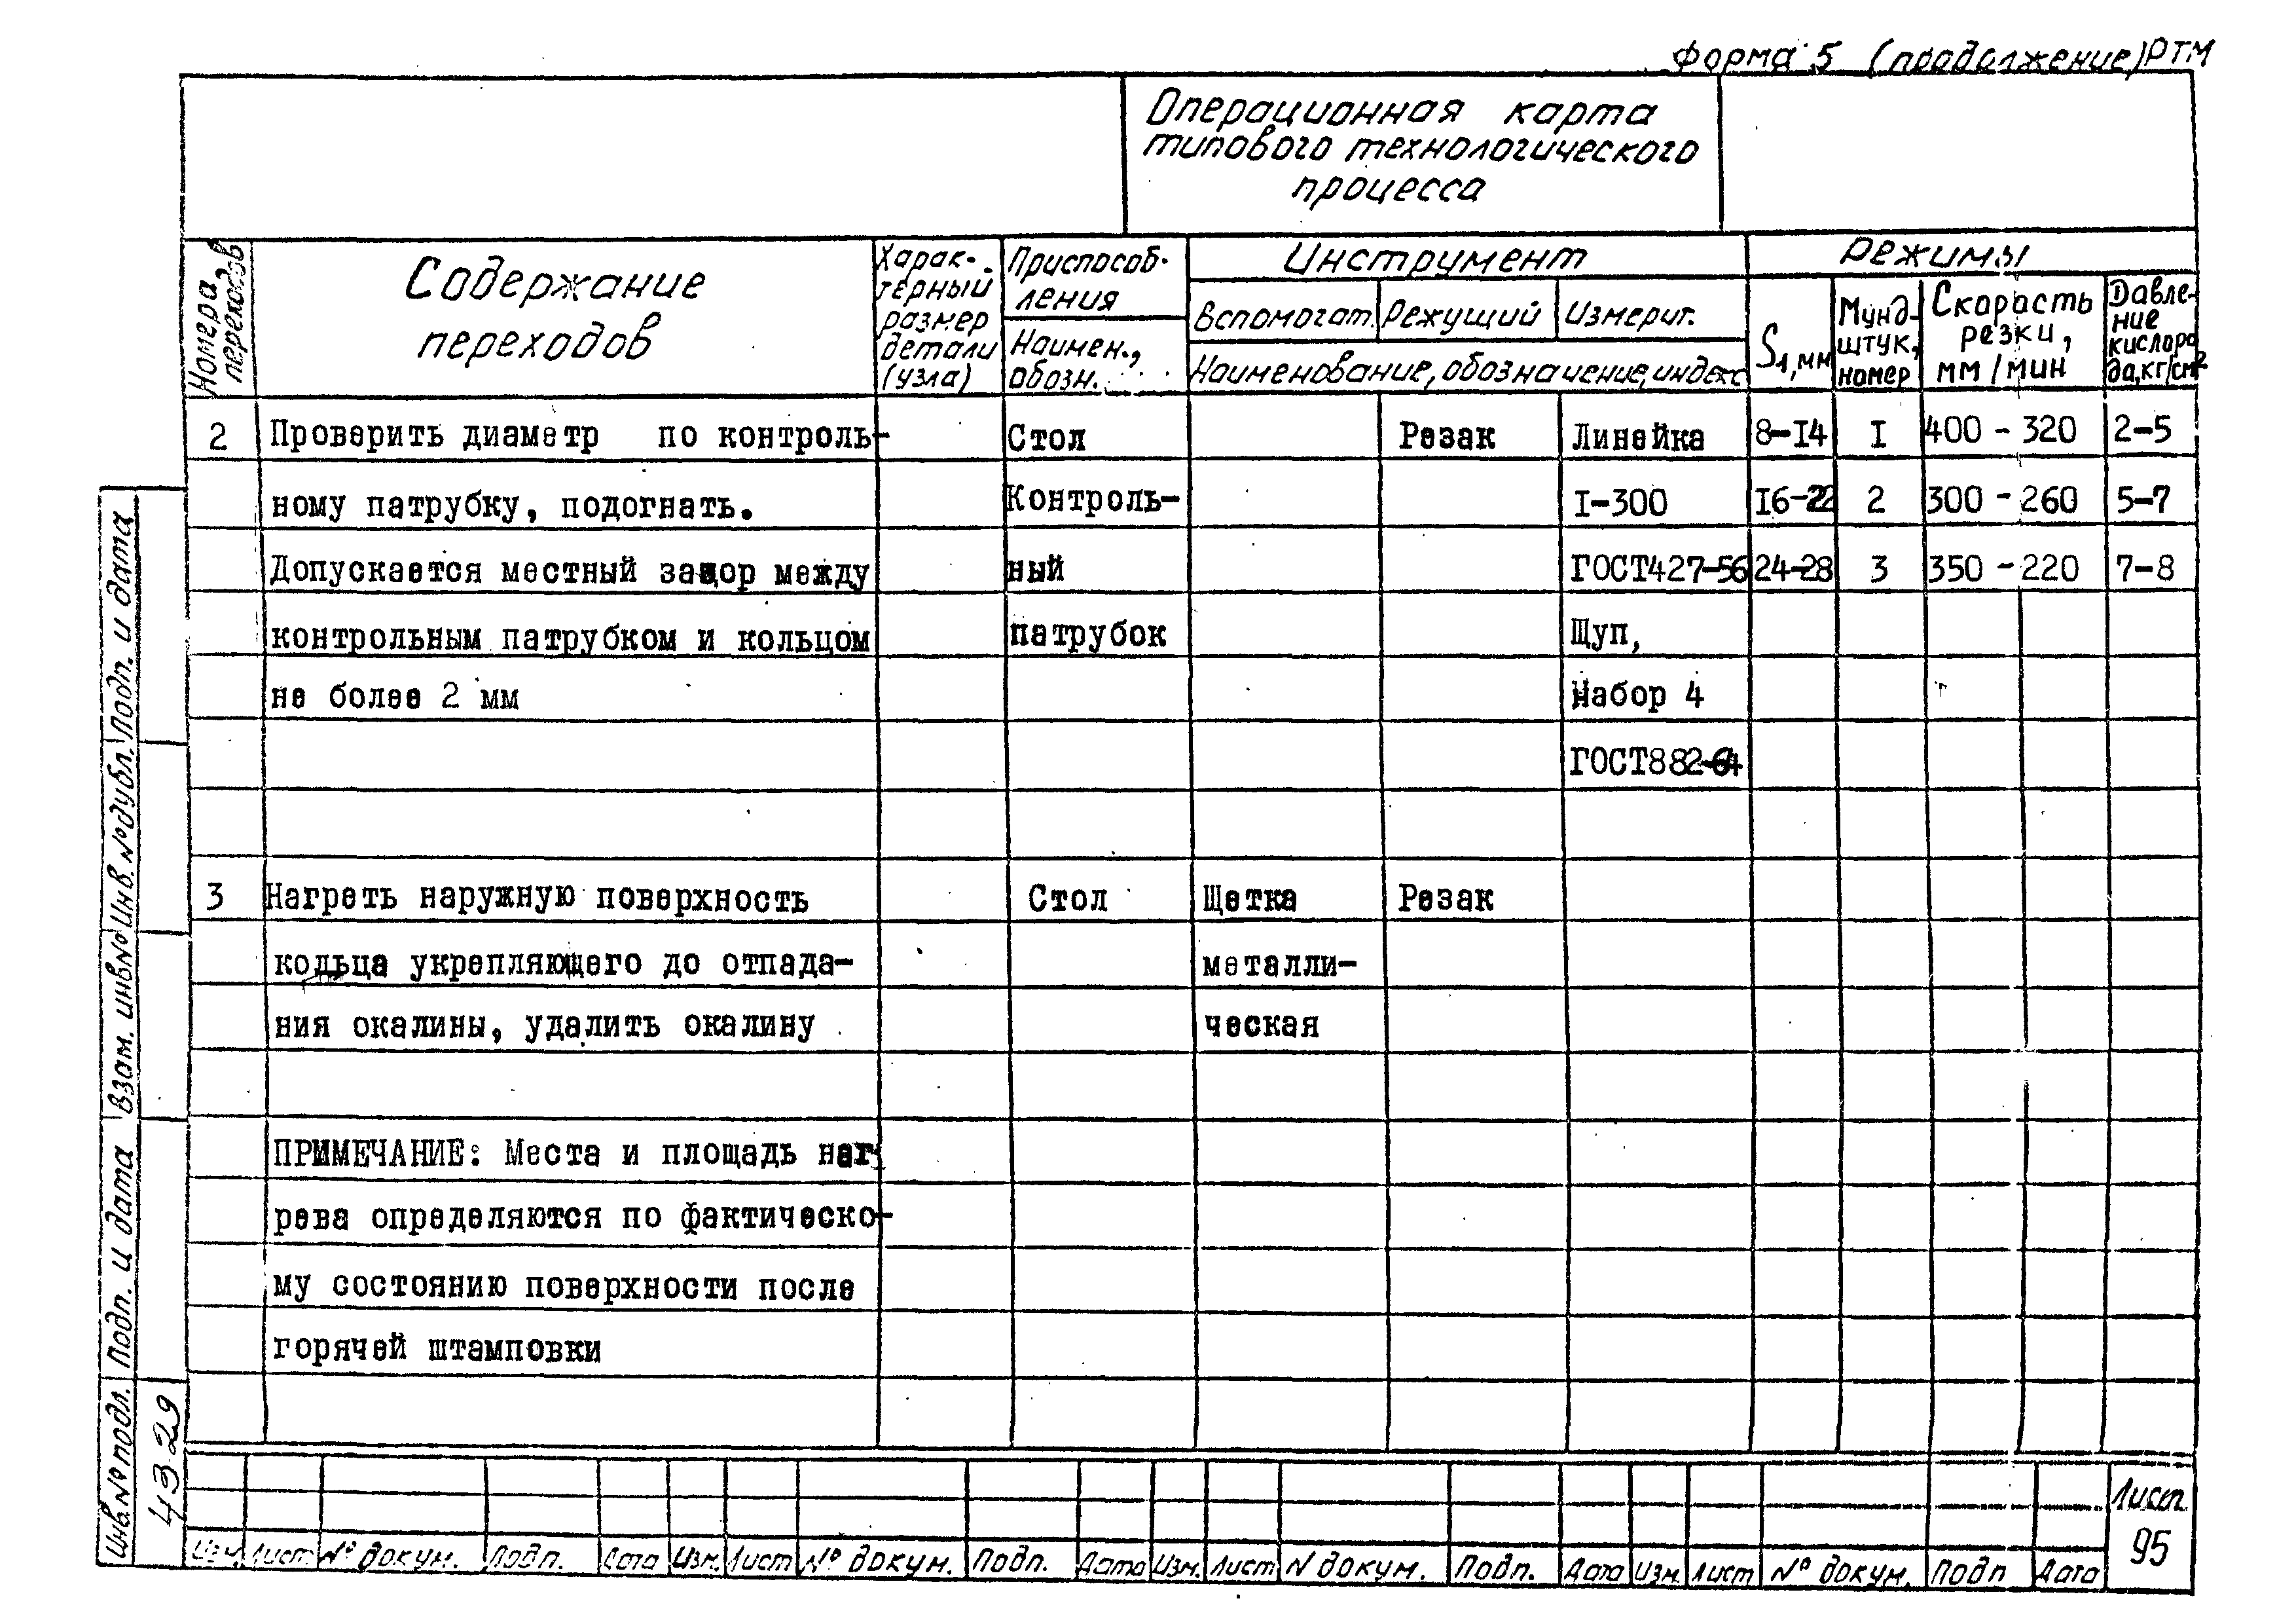 Форма 5 (продолжение) РТМ
Операционная карта
типового технологического
процесса
Номера переходов
Содержание
переходов
Харак-
терный
размер
детали
(узла)
Приспособ-
ления
Наимен.,
обозн.
Инструмент
Вспомогат. Режущий Измерит.
Наименование, обозначение, индекс
Режимы
S1, мм
Мунд-
штук,
номер
Скорость
резки,
мм/мин
Давле-
ние
кислоро
да, кг/см²
2 Проверить диаметр по контроль- Стол Резак Линейка 8-I4 I 400 - 320 2-5
ному патрубку, подогнать. Контроль- I-300 I6-22 2 300 - 260 5-7
Допускается местный зазор между ный ГОСТ427-56 24-28 3 350 - 220 7-8
контрольным патрубком и кольцом патрубок Щуп,
не более 2 мм набор 4
ГОСТ882-64
3 Нагреть наружную поверхность Стол Щетка Резак
кольца укрепляющего до отпада- металли-
ния окалины, удалить окалину ческая
ПРИМЕЧАНИЕ: Места и площадь наг-
рева определяются по фактическо-
му состоянию поверхности после
горячей штамповки
Инв.№ подл. Подп. и дата Взам. инв№ Инв.№ дубл. Подп. и дата
4329
Изм. Лист № докум. Подп. Дата Изм. Лист № докум. Подп. Дата Изм. Лист N докум. Подп. Дата Изм. Лист № докум. Подп Дата
Лист
95